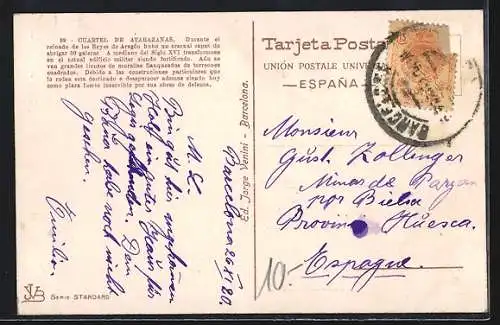 99 - CUARTEL DE ATARAZANAS. Durante el
reinado de los Reyes de Aragón hubo un arsenal capaz de
abrigar 30 galeras. A mediados del Siglo XVI transformaron
en el actual edificio militar siendo fortificado. Aún se
ven grandes lienzos de murallas flanqueados de torreones
cuadrados. Debido a las construcciones particulares que
le rodea está destinado a desaparecer además siendo hoy
como plaza fuerte inservible por sus obras de defensa.
Barcelona 26 XI 20.
M. L.
Bin gut hier angekommen
habe noch nicht
gesehen.
Emilio
JVB
Serie STANDARD
Ed. Jorge Venini - Barcelona.
Tarjeta Posta
UNIÓN POSTALE UNIVER
— ESPAÑA —
BARCE
Monsieur
Gust. Zollinger
Minas de Parzan
por Bielsa
Provin Huesca.
Espagne.
10.